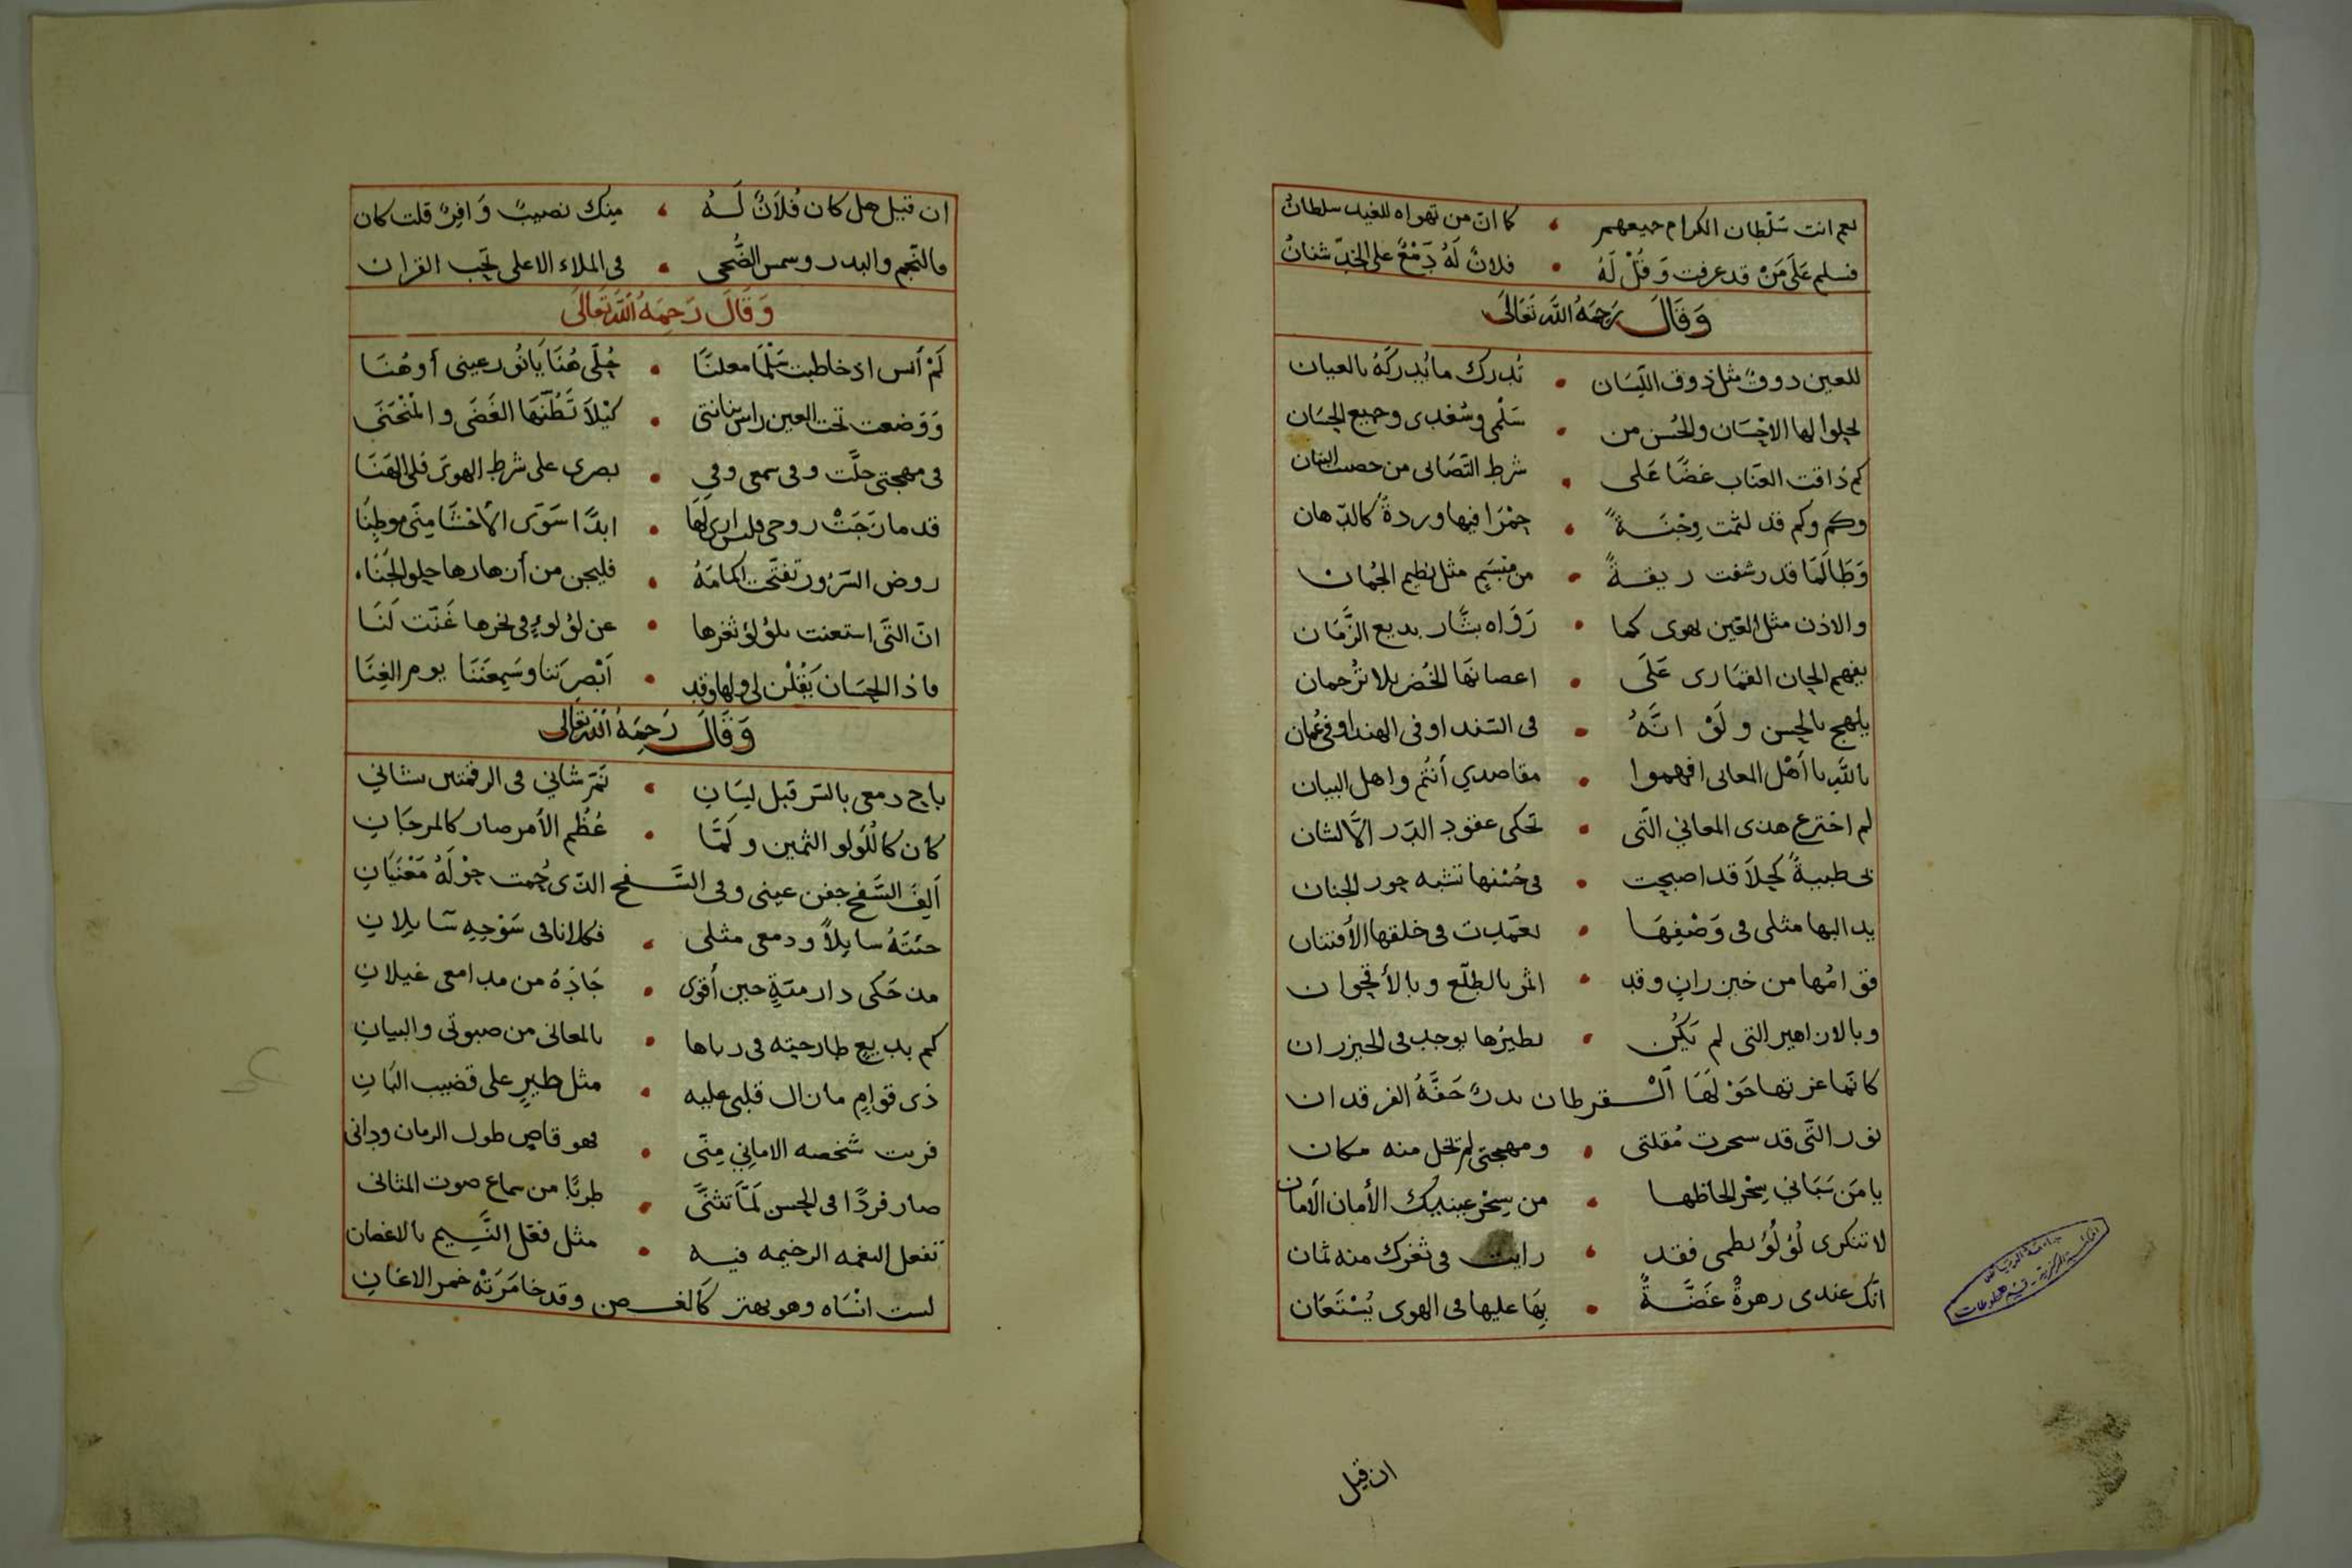 نعم انت سَلْطان الكرام جميعهم ، كما ان من تهواه للغيد سلطانُ
فسلم عَلَى مَنْ قد عرفت وَقُلْ لَهُ • فلانٌ لَهُ دَمْعٌ على الخدّ شنانُ
وَقَالَ رَحِمَهُ اللَّه تَعَالَى
للعين ذوقٌ مثل ذوق اللّسَان • تُدرك ما يُدركَهُ بالعيان
لجلوا لها الاحْسَان والحُسن من • سَلْمى وسُعْدى وجميع الحِسَان
كم ذاقت العنّاب غضًا عَلى • شرط التّصَابى من خصب البنان
وكم وكم قد لثمت وِجْنَةً • حِمْرَا فيها وردةً كالدّهان
وَطَالَمَا قد رشفت ريقةً • من مَبْسَمٍ مثل نظيم الجُمان
والاذن مثل العَين تهوى كما • رَوَاه بشَّار بديع الزَّمَان
يفهم الحان القمَارى عَلَى • اغصانَها الخُضر بلا تُرجمان
يلهج بالحسن ولَوْ انَّهُ • فى السّند او فى الهند او فى عُمان
باللَّه يا أهْل المعانى افهموا • مقاصدي أنتُم واهل البيان
لم اخترع هذى المعاني الّتى • تحكى عقود الدّر الاَّ لشان
فى ظبيةً كحِلاَ قد اصبحت • فى حُسْنها تشبه حور الجنان
يد البها مثلى فى وَصْفِهَا • تعمّدت فى خلقها الأفتنان
فقوامُها من خيزرانٍ وقد • اثمر بالطلّع وبالأقحوان
وبالازاهير التى لم يَكُن • نظيرُها يوجد فى الخيزران
كانّما غرتها حَوْلَهَا القرطان بدرٌ حَفَّهُ الفرقدان
نور الّتى قد سحرت مُقلتى • ومهجتى لم تخل منه مكان
يا مَن سَبَانى سِحْر الحاظها • من سِحْر عينيك الأمان الأمان
لا تنكرى لُؤلُؤ نظمى فقد • رايت فى ثغرك منه ثمان
انّك عندى زهرةٌ غَضَّةٌ • بِهَا عليها فى الهوى يُسْتَعَان
ان قيل
ان قيل هل كان فُلاَنٌ لَهُ ، مِنك نصيبٌ وَافِرٌ قلت كان
فالنّجم والبدر وسمس الضُّحى • فى الملاء الاعلى تحِب القران
وَقَالَ رَحِمَهُ اَللَّه تَعَالَى
لَمْ أنس اذ خاطبت سَلْمَا معلنَا • حُلّى هُنَا يَا نُور عينى أو هُنَا
وَوَضعت تحت العين راس بنانتى • كيْلاَ تَظُنّهَا الغَضَى والمُنْحَنَى
فى مهجتى حلَّت وفى سمعى وفى • بصرى على شرط الهوَى فلى الهَنَا
قد مازَجَتْ روحى فلس ارى لَهَا • ابدًا سَوَى الأحْشَا مِنّى موطِنًا
روض السّرُور تفتّحت اكمامَهُ • فليجن من أزهارها حلو الجَنَا،
انّ الّتى استعنت بلؤلؤ ثغرها • عن لؤلوءٍ فى نحرها غَنّت لَنَا
ماذا الحِسَان يَقُلْن لى ولها وقد • أبْصِرَننا وسَمِعْنَنَا يوم الغِنَا
وَقَالَ رَحِمَهُ اَللَّه تعَالى
باح دمعى بالسّر قبل لِسَانِ • ثمّر شاني فى الرقمتين شاني
كان كاللُؤلو الثمين ولَمَّا • عُظّم الأمر صار كالمرجَانِ
أَلِفَ السَّفح جفن عينى وفى السَّفح الذّى حُمت حوْلَهُ مَغْنَيَانِ
جئتَهُ سايلاً ودمعى مثلى • فكلانا فى سَوْحِهِ سَايلانِ
مذ حَكى دار ميّةٍ حين أقوى • جَادَهُ من مدامعى غيلانِ
كم بديعٍ طارحته فى رباها • بالمعانى من صبوتى والبيانِ
ذى قوامِ ما زال قلبى عليه • مثل طيرٍ على قضيب البَانِ
قربت شَخصه الاماني مِنّى • فهو قاصٍ طول الزمان ودانى
صار فردًا فى الحسن لَمَّا تثنَّى • طربًا من سماع صوت المثانى
تفعل النغمه الرخيمه فيه • مثل فعْل النَّسِيم بالاغصان
لست انْسَاه وهو يهتز كَالغصن وقد خامَرَتْهُ خمر الاغانِ